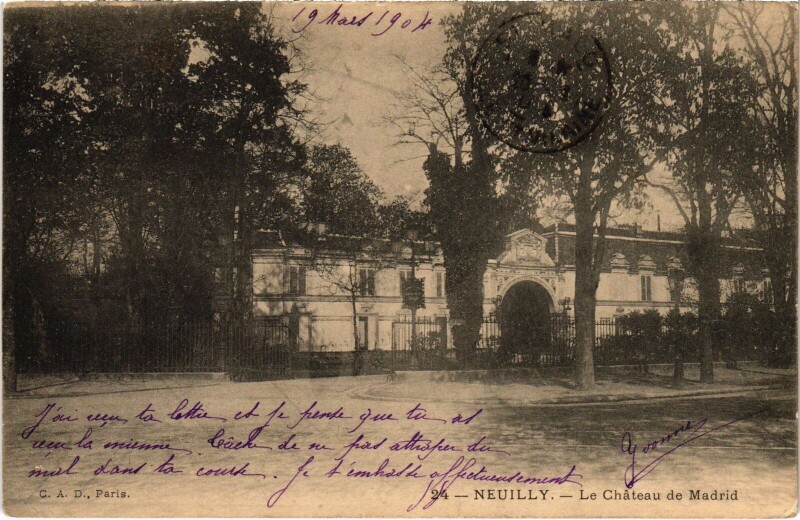 19 Mars 1904
J'ai reçu ta lettre et je pense que tu as
reçu la mienne. Tâche de ne pas attraper du
mal dans ta course. Je t'embrasse affectueusement
Yvonne
C. A. D., Paris.
24 — NEUILLY. — Le Château de Madrid